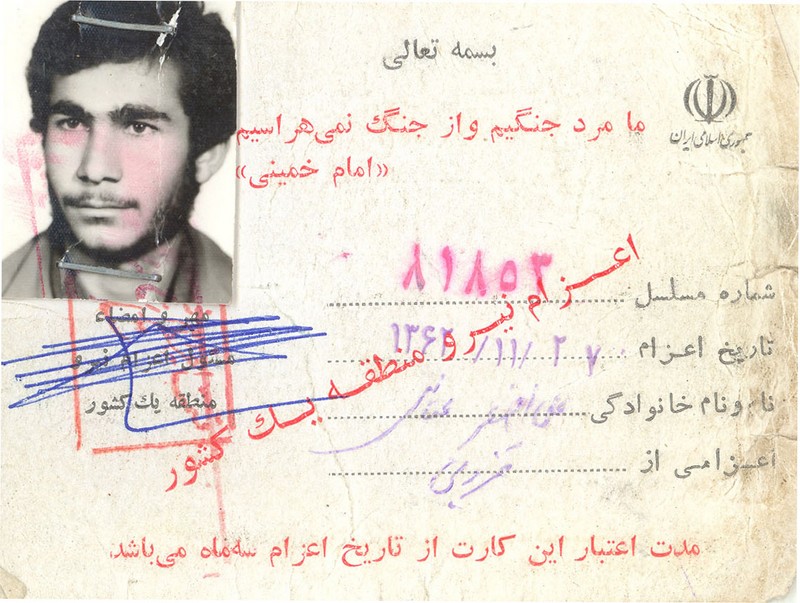 بسمه تعالی
جمهوری اسلامی ایران
ما مرد جنگیم و از جنگ نمی‌هراسیم
«امام خمینی»
شماره مسلسل ۸۱۸۵۳
تاریخ اعزام ۱۳۶۲/۱۱/۲۷
نام و نام خانوادگی
اعزامی از قزوین
مهر و امضاء
مسئول اعزام نیرو
منطقه یك کشور
اعزام نیرو منطقه یك کشور
مدت اعتبار این کارت از تاریخ اعزام سه‌ماه می‌باشد.